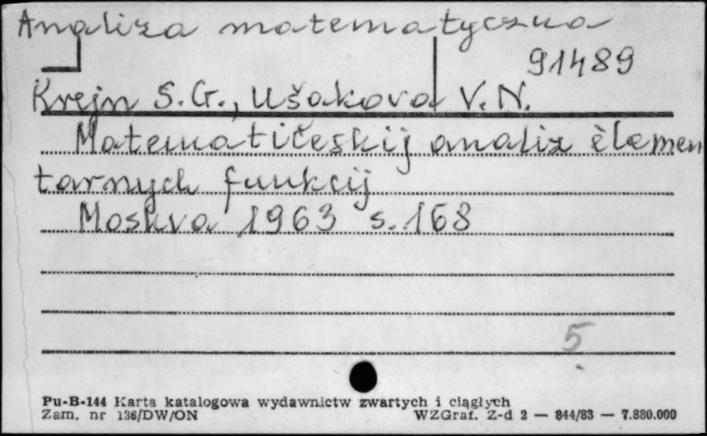 Analiza matematyczna
91489
Krejn S.G., Ušakova V.N.
Matematičeskij analiz èlemen
tarnych funkcij
Moskva 1963 s. 168
5
Pu-B-144 Karta katalogowa wydawnictw zwartych i ciągłych
Zam. nr 136/DW/ON WZGraf. Z-d 2 — 844/83 — 7.880.000